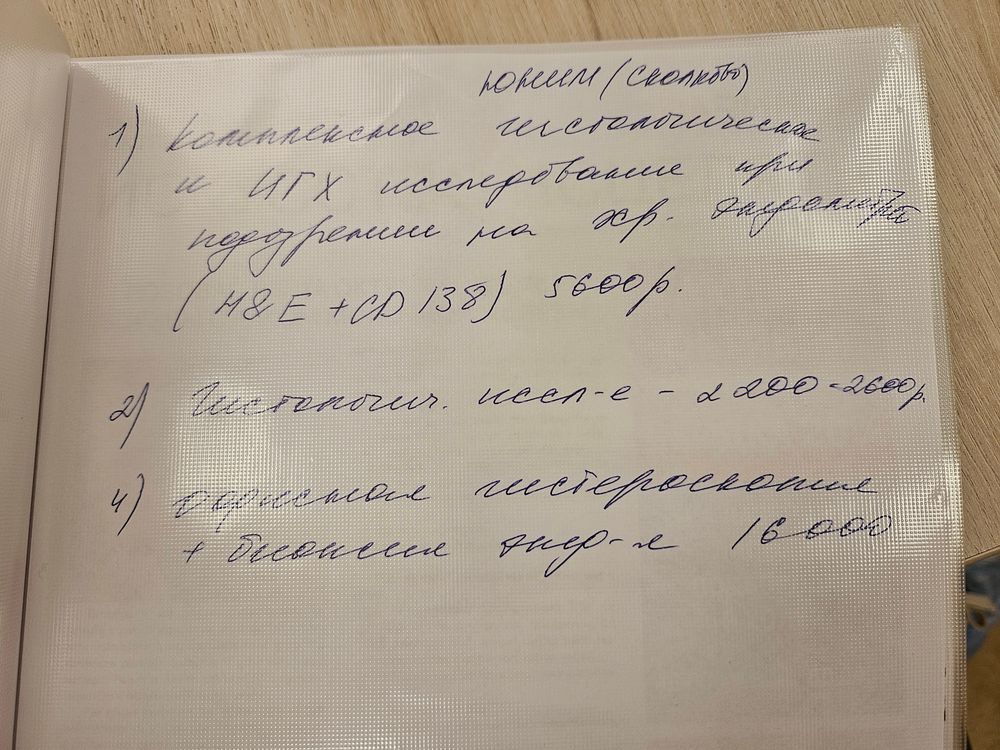 ЮНИМ (Сколково)
1) Комплексное гистологическое
и ИГХ исследование при
подозрении на хр. эндометрит
(H&E + CD 138) 5600р.
2) Гистологич. иссл-е - 2200-2600р.
4) Офисная гистероскопия
+ биопсия энд-я 16000